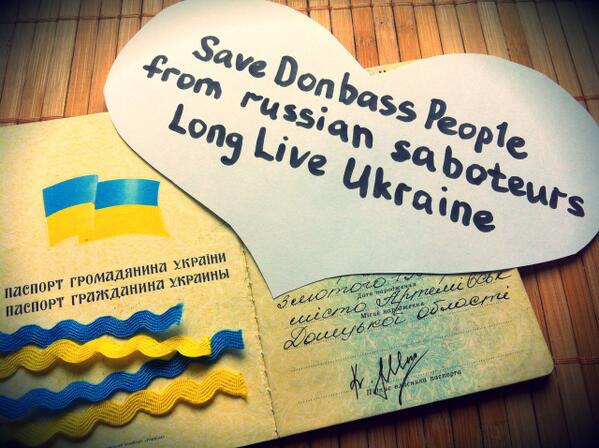 Save Donbass People
from russian saboteurs
Long Live Ukraine
ПАСПОРТ ГРОМАДЯНИНА УКРАЇНИ
ПАСПОРТ ГРАЖДАНИНА УКРАИНЫ
3 лютого
Дата народження
місто Артемівськ
Місце народження
Донецької області
Підпис власника паспорта